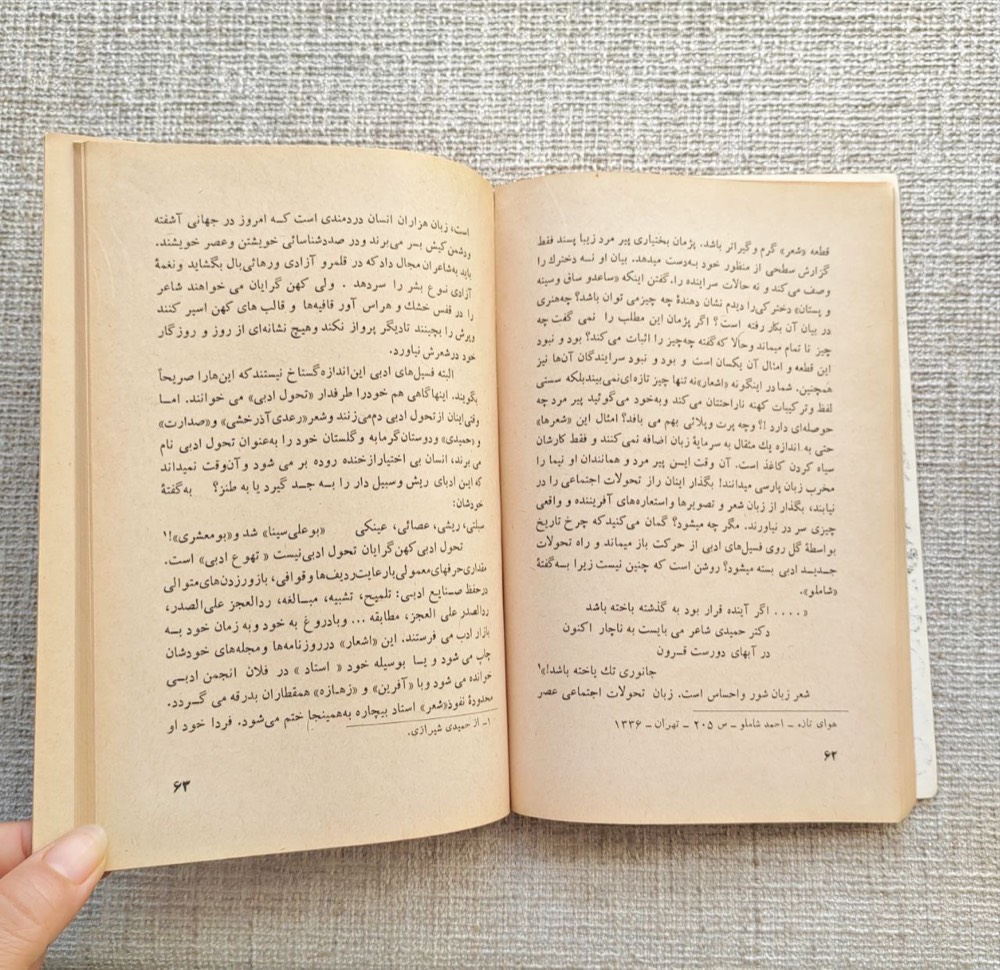 قطعه «شعر» گرم وگیراتر باشد. پژمان بختیاری پیر مرد زیبا پسند فقط
گزارش سطحی از منظور خود به‌دست میدهد. بیان او نسه دخترك را
وصف می‌کند و نه حالات سراینده را، گفتن اینکه «ساعدو ساق وسینه
و پستان» دخترکی‌را دیدم نشان دهندهٔ چه چیزمی توان باشد؟ چه‌هنری
در بیان آن بکار رفته است؟ اگر پژمان این مطلب را نمی گفت چه
چیز نا تمام میماند وحالا که‌گفته چه‌چیز را اثبات می‌کند؟ بود و نبود
این قطعه و امثال آن یکسان است و بود و نبود سرایندگان آن‌ها نیز
همچنین. شما در اینگونه «اشعار» نه تنها چیز تازه‌ای‌نمی‌بینیدبلکه سستی
لفظ وترکیبات کهنه ناراحتتان می‌کند وبه‌خود می‌گوئید پیر مرد چه
حوصله‌ای دارد !؟ وچه پرت وپلائی بهم می بافد؟ امثال این «شعرها»
حتی به اندازه یك مثقال به سرمایهٔ زبان اضافه نمی‌کنند و فقط کارشان
سیاه کردن کاغذ است. آن وقت ایسن پیر مرد و همانندان او نیما را
مخرب زبان پارسی میدانند! بگذار اینان راز تحولات اجتماعی را در
نیابند، بگذار از زبان شعر و تصویرها واستعاره‌های آفریننده و واقعی
چیزی سر در نیاورند. مگر چه میشود؟ گمان می‌کنیدکه چرخ تاریخ
بواسطهٔ گل روی فسیل‌های ادبی از حرکت باز میماند و راه تحولات
جـدیـد ادبی بسته میشود؟ روشن است که چنین نیست زیرا بـه‌گفتهٔ
«شاملو».
« .... اگر آینده قرار بود به گذشته باخته باشد
دکتر حمیدی شاعر می بایست به ناچار اکنون
در آبهای دورست قـرون
جانوری تك یاخته باشد!»¹
شعر زبان شور واحساس است. زبان تحولات اجتماعی عصر
هوای تازه ـ احمد شاملو ـ س ۲۰۵ ـ تهران ـ ۱۳۳۶
۶۲
است، زبان هزاران انسان دردمندی است کـه امروز در جهانی آشفته
ودشمن‌کیش بسر می‌برند ودر صددشناسائی خویشتن وعصر خویشند.
باید به‌شاعران مجال داد که در قلمرو آزادی ورهائی‌بال بگشاید ونغمهٔ
آزادی نـوع بشر را سردهد . ولی کهن گرایان می خواهند شاعر
را در قفس خشك و هراس آور قافیه‌ها و قالب های کهن اسیر کنند
وپرش را بچینند تادیگر پرواز نکند وهیچ نشانه‌ای از روز و روزگار
خود در شعرش نیاورد.
البته فسیل‌های ادبی این‌اندازه‌گستاخ نیستند که این‌هارا صریحاً
بگویند. اینهاگاهی هم خودرا طرفدار «تحول ادبی» می خوانند. امـا
وقتی‌اینان ازتحول ادبی دم‌می‌زنند وشعر«رعدی‌آذرخشی» و«صدارت»
و «حمیدی» ودوستان‌گرمابه و گلستان خود را به‌عنوان تحول ادبی نام
می برند، انسان بی اختیارازخنده روده بر می شود و آن‌وقت نمیداند
که این ادبای ریش وسبیل دار را بـه جـد گیرد یا به طنز؟ به‌گفتهٔ
خودشان:
سبلتی، ریشی، عصائی، عینکی «بوعلی‌سینا» شد و«بومعشری»!¹
تحول ادبی‌کهن‌گرایان تحول ادبی‌نیست « تهوع ادبی» است.
مقداری‌حرفهای‌معمولی‌بارعایت‌ردیف‌ها وقوافی، بازورزدن‌های‌متوالی
درحفظ صنایع ادبـی: تلمیح، تشبیه، مبـالغه، ردالعجز علی‌الصدر،
ردالصدر علی العجز، مطابقه ... وبادروغ به خود وبه زمان خود بـه
بازار ادب می فرستند. این «اشعار» درروزنامه‌ها ومجله‌های خودشان
چاپ می شود و یـا بوسیله خود « استاد » در فلان انجمن ادبـی
خوانده می شود وبا «آفرین» و «زهـازه» همقطاران بدرقه می گردد.
محدودهٔ نفوذ«شعر» استاد بیچاره به‌همینجا ختم می‌شود. فردا خود او
۱ـ از حمیدی شیرازی.
۶۳